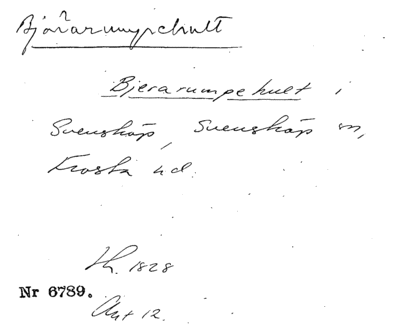 Bjärarumpehult
Bjerarumpehult i
Svensköp, Svensköp sn,
Frosta hd.
Lh. 1828
Nr 6789.
Akt 12.